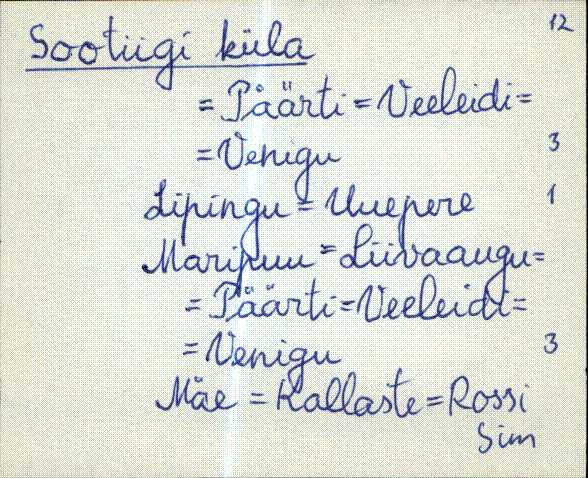 12
Sootiigi küla
= Päärti = Veeleidi =
= Venigu 3
Lipingu = Uuepere 1
Maripuu = Liivaaugu =
= Päärti = Veeleidi =
= Venigu 3
Mäe = Kallaste = Rossi
Sim